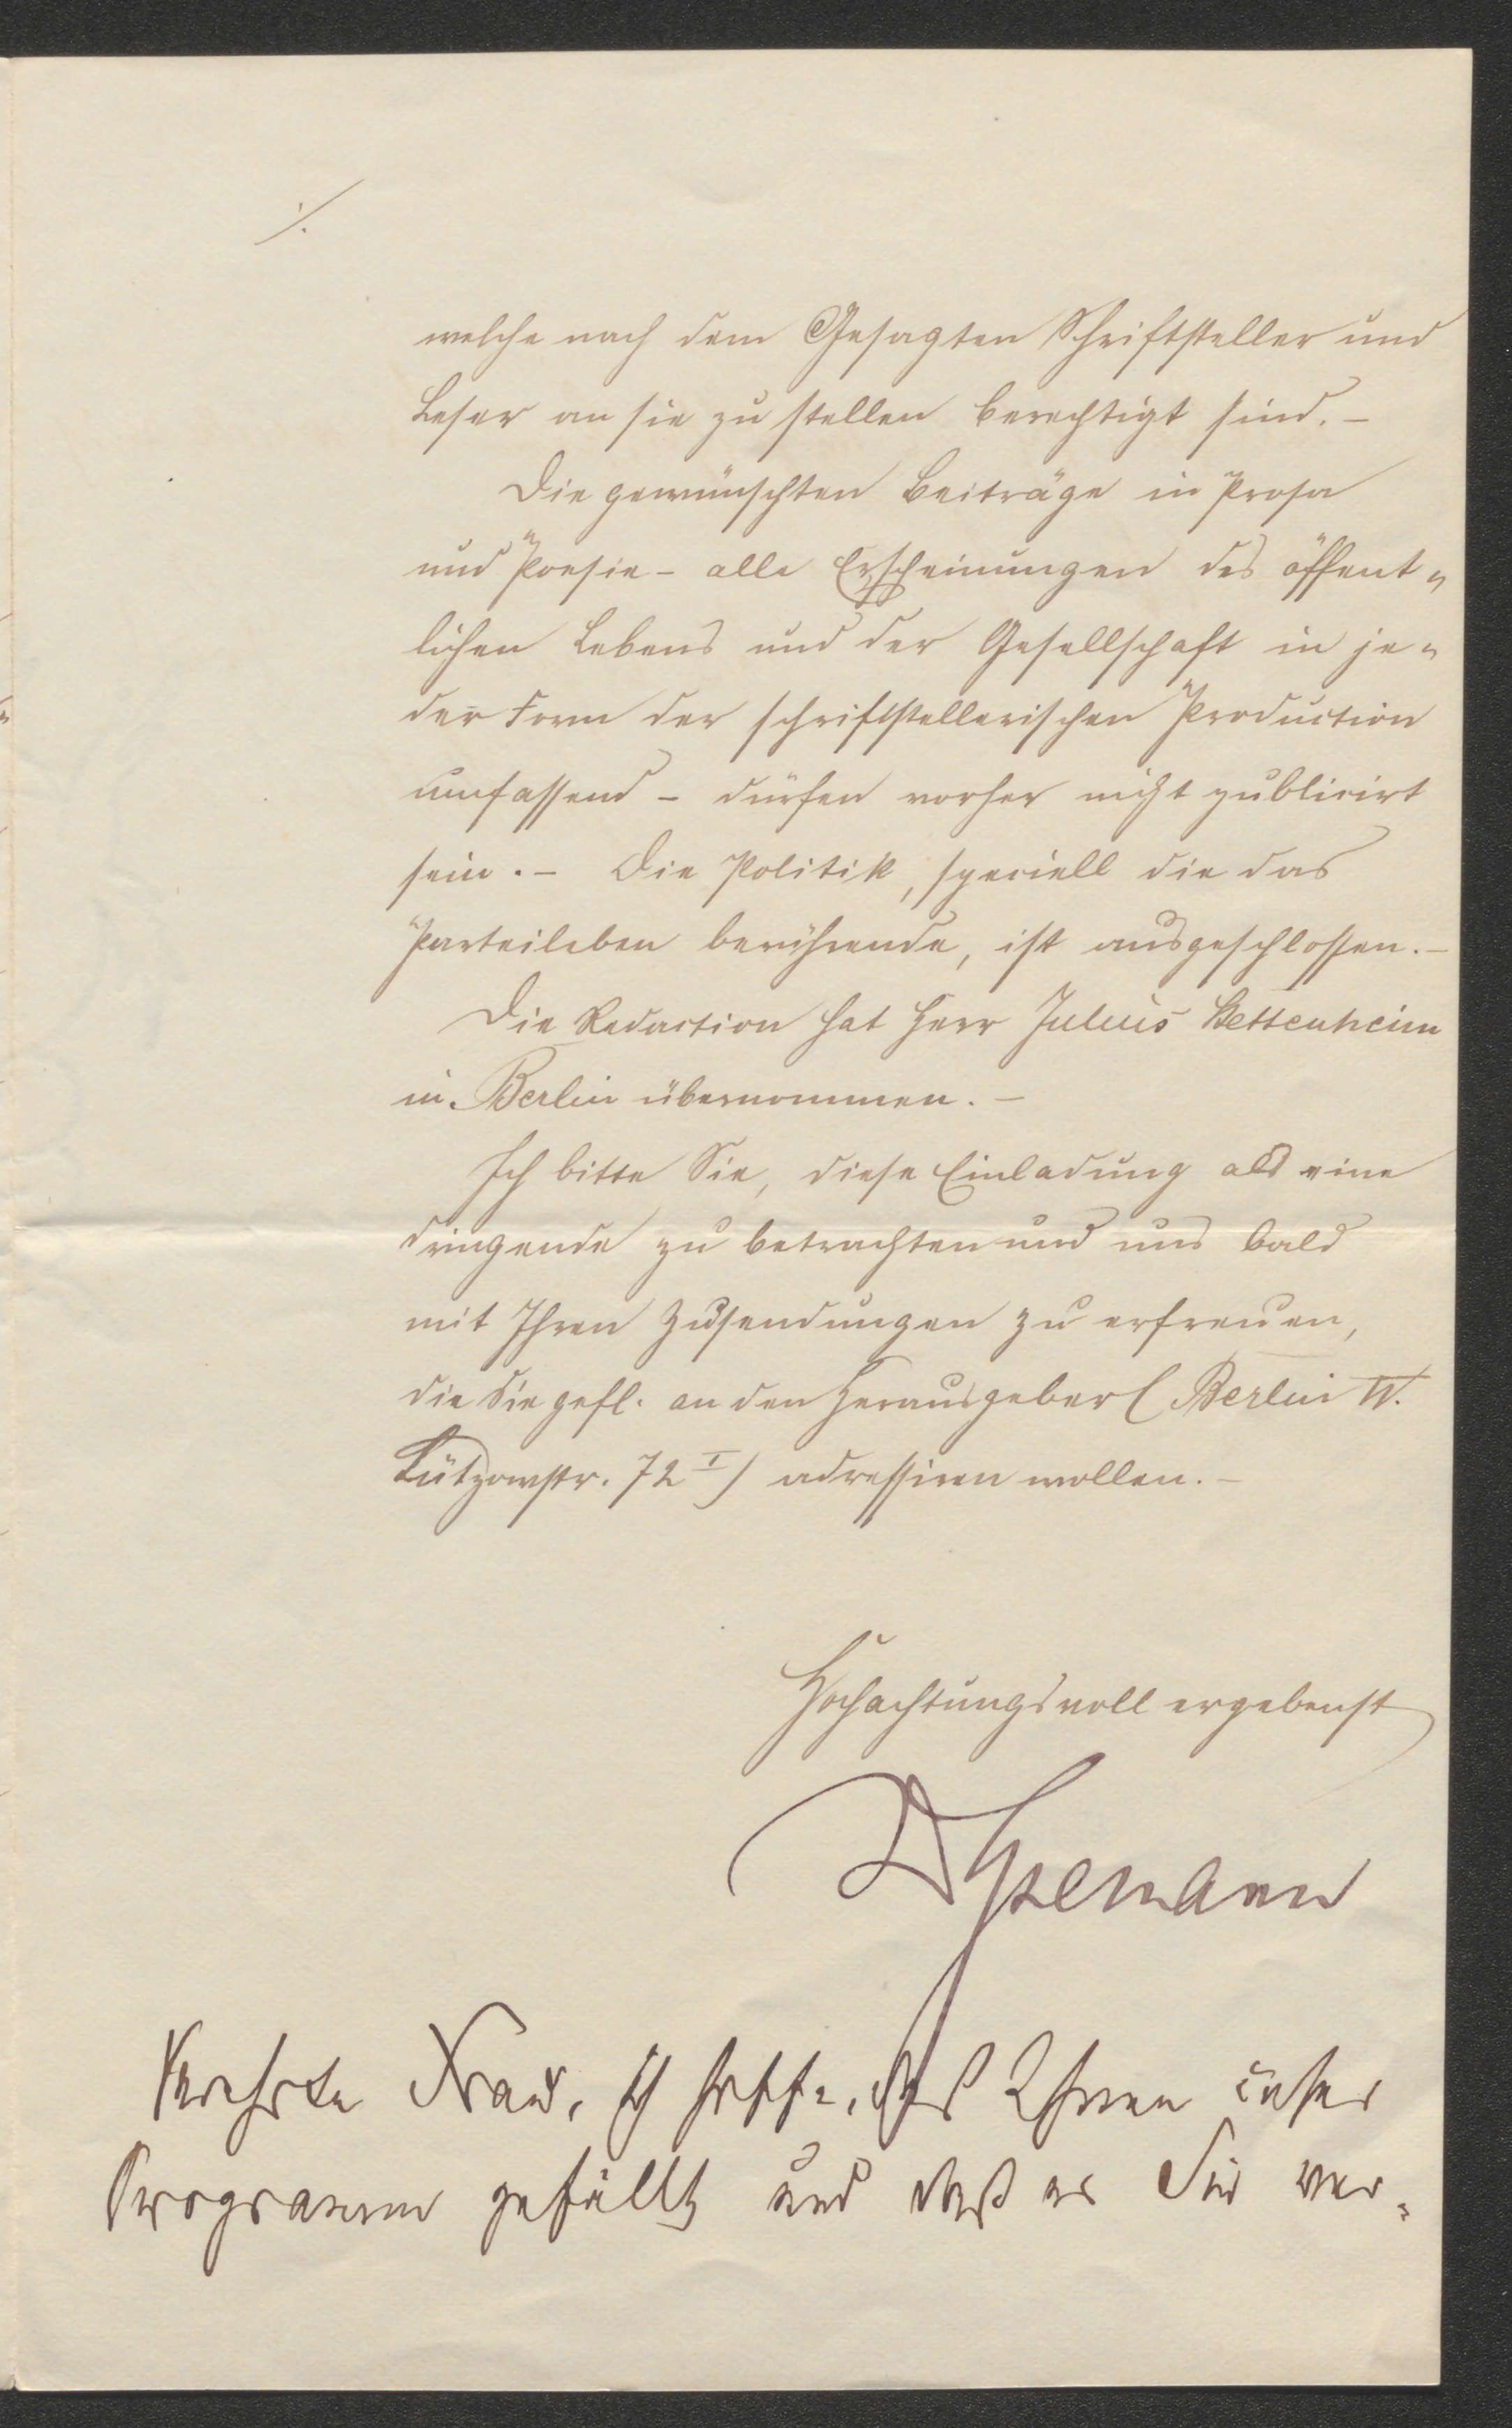 ./.
welche nach dem Gesagten Schriftsteller und
Leser an sie zu stellen berechtigt sind. –
Die gewünschten Beiträge in Prosa
und Poesie – alle Erscheinungen des öffent-
lichen Lebens und der Gesellschaft in je-
der Form der schriftstellerischen Production
umfassend – dürfen vorher nicht publicirt
sein. – Die Politik, speciell die das
Parteileben berührende, ist ausgeschlossen. –
Die Redaction hat Herr Julius Stettenheim
in Berlin übernommen. –
Ich bitte Sie, diese Einladung als eine
dringende zu betrachten und uns bald
mit Ihren Zusendungen zu erfreuen,
die Sie gefl. an den Herausgeber (Berlin W.
Lützowstr. 72 I) adressiren wollen. –
Hochachtungsvoll ergebenst
WSpemann
Verehrte Frau, ich hoffe, daß Ihnen unser
Programm gefällt und daß es Sie ver-